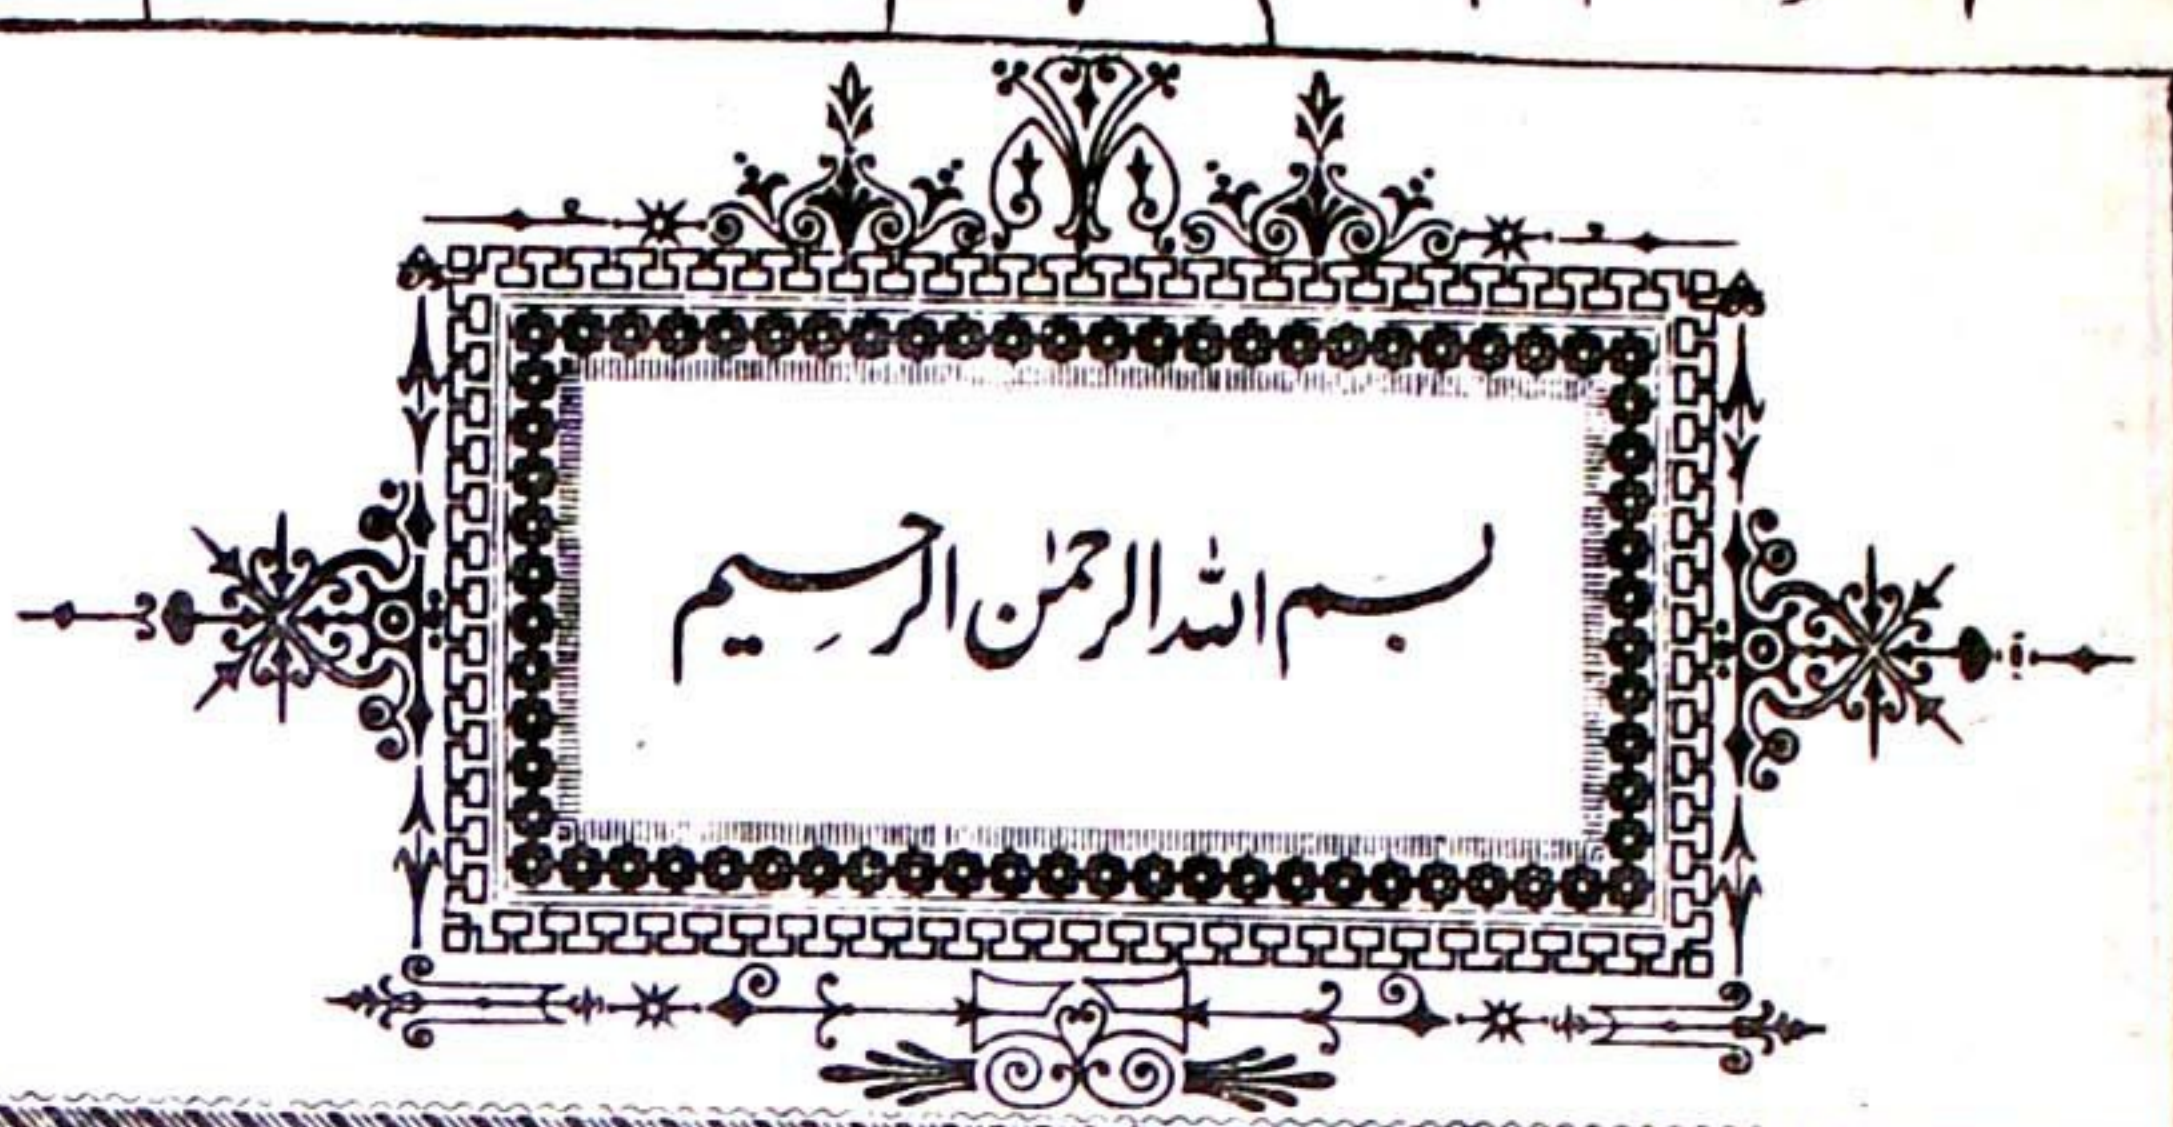 بسم الله الرحمٰن الرحِیم